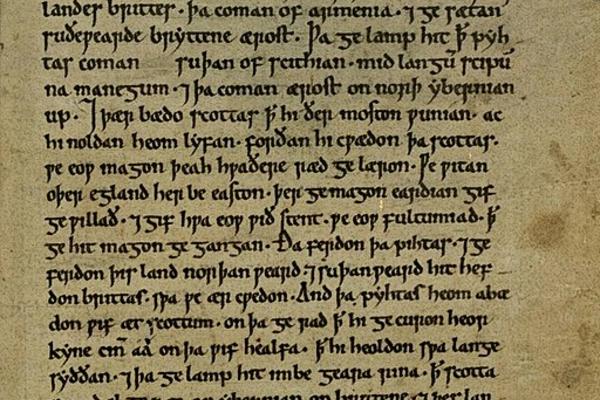 landes brittes. þa coman of armenia. ⁊ ge sætan
suðeƿearde bryttene ærost. Þa ge lamp hit ꝥ pyh
tas coman suþan of scithian. mid langū scipū
na manegum. ⁊ þa coman ærost on norþ ybernian
up. ⁊ þær bædo scottas ꝥ hi ðer moston ƿunian. ac
hi noldan heom lyfan. forðan hi cƿædon þa scottas.
ƿe eoƿ magon þeah hƿaðere ræd ge læron. Ƿe ƿitan
oþer egland her be easton. þer ge magon eardian gif
ge ƿillað. ⁊ gif hƿa eoƿ ƿið stent. ƿe eoƿ fultumiað. ꝥ
ge hit magon ge gangan. Ða ferdon þa pihtas. ⁊ ge
ferdon þis land norþan ƿeard. ⁊ suþan ƿeard hit hef
don brittas. sƿa ƿe ær cƿedon. And þa pyhtas heom abæ
don ƿif æt scottum. on þa ge rad ꝥ hi ge curon heor
kyne cin̄ aá on þa ƿif healfa. ꝥ hi heoldon sƿa lange
syððan. ⁊ þa ge lamp hit imbe geara rina. ꝥ scotta